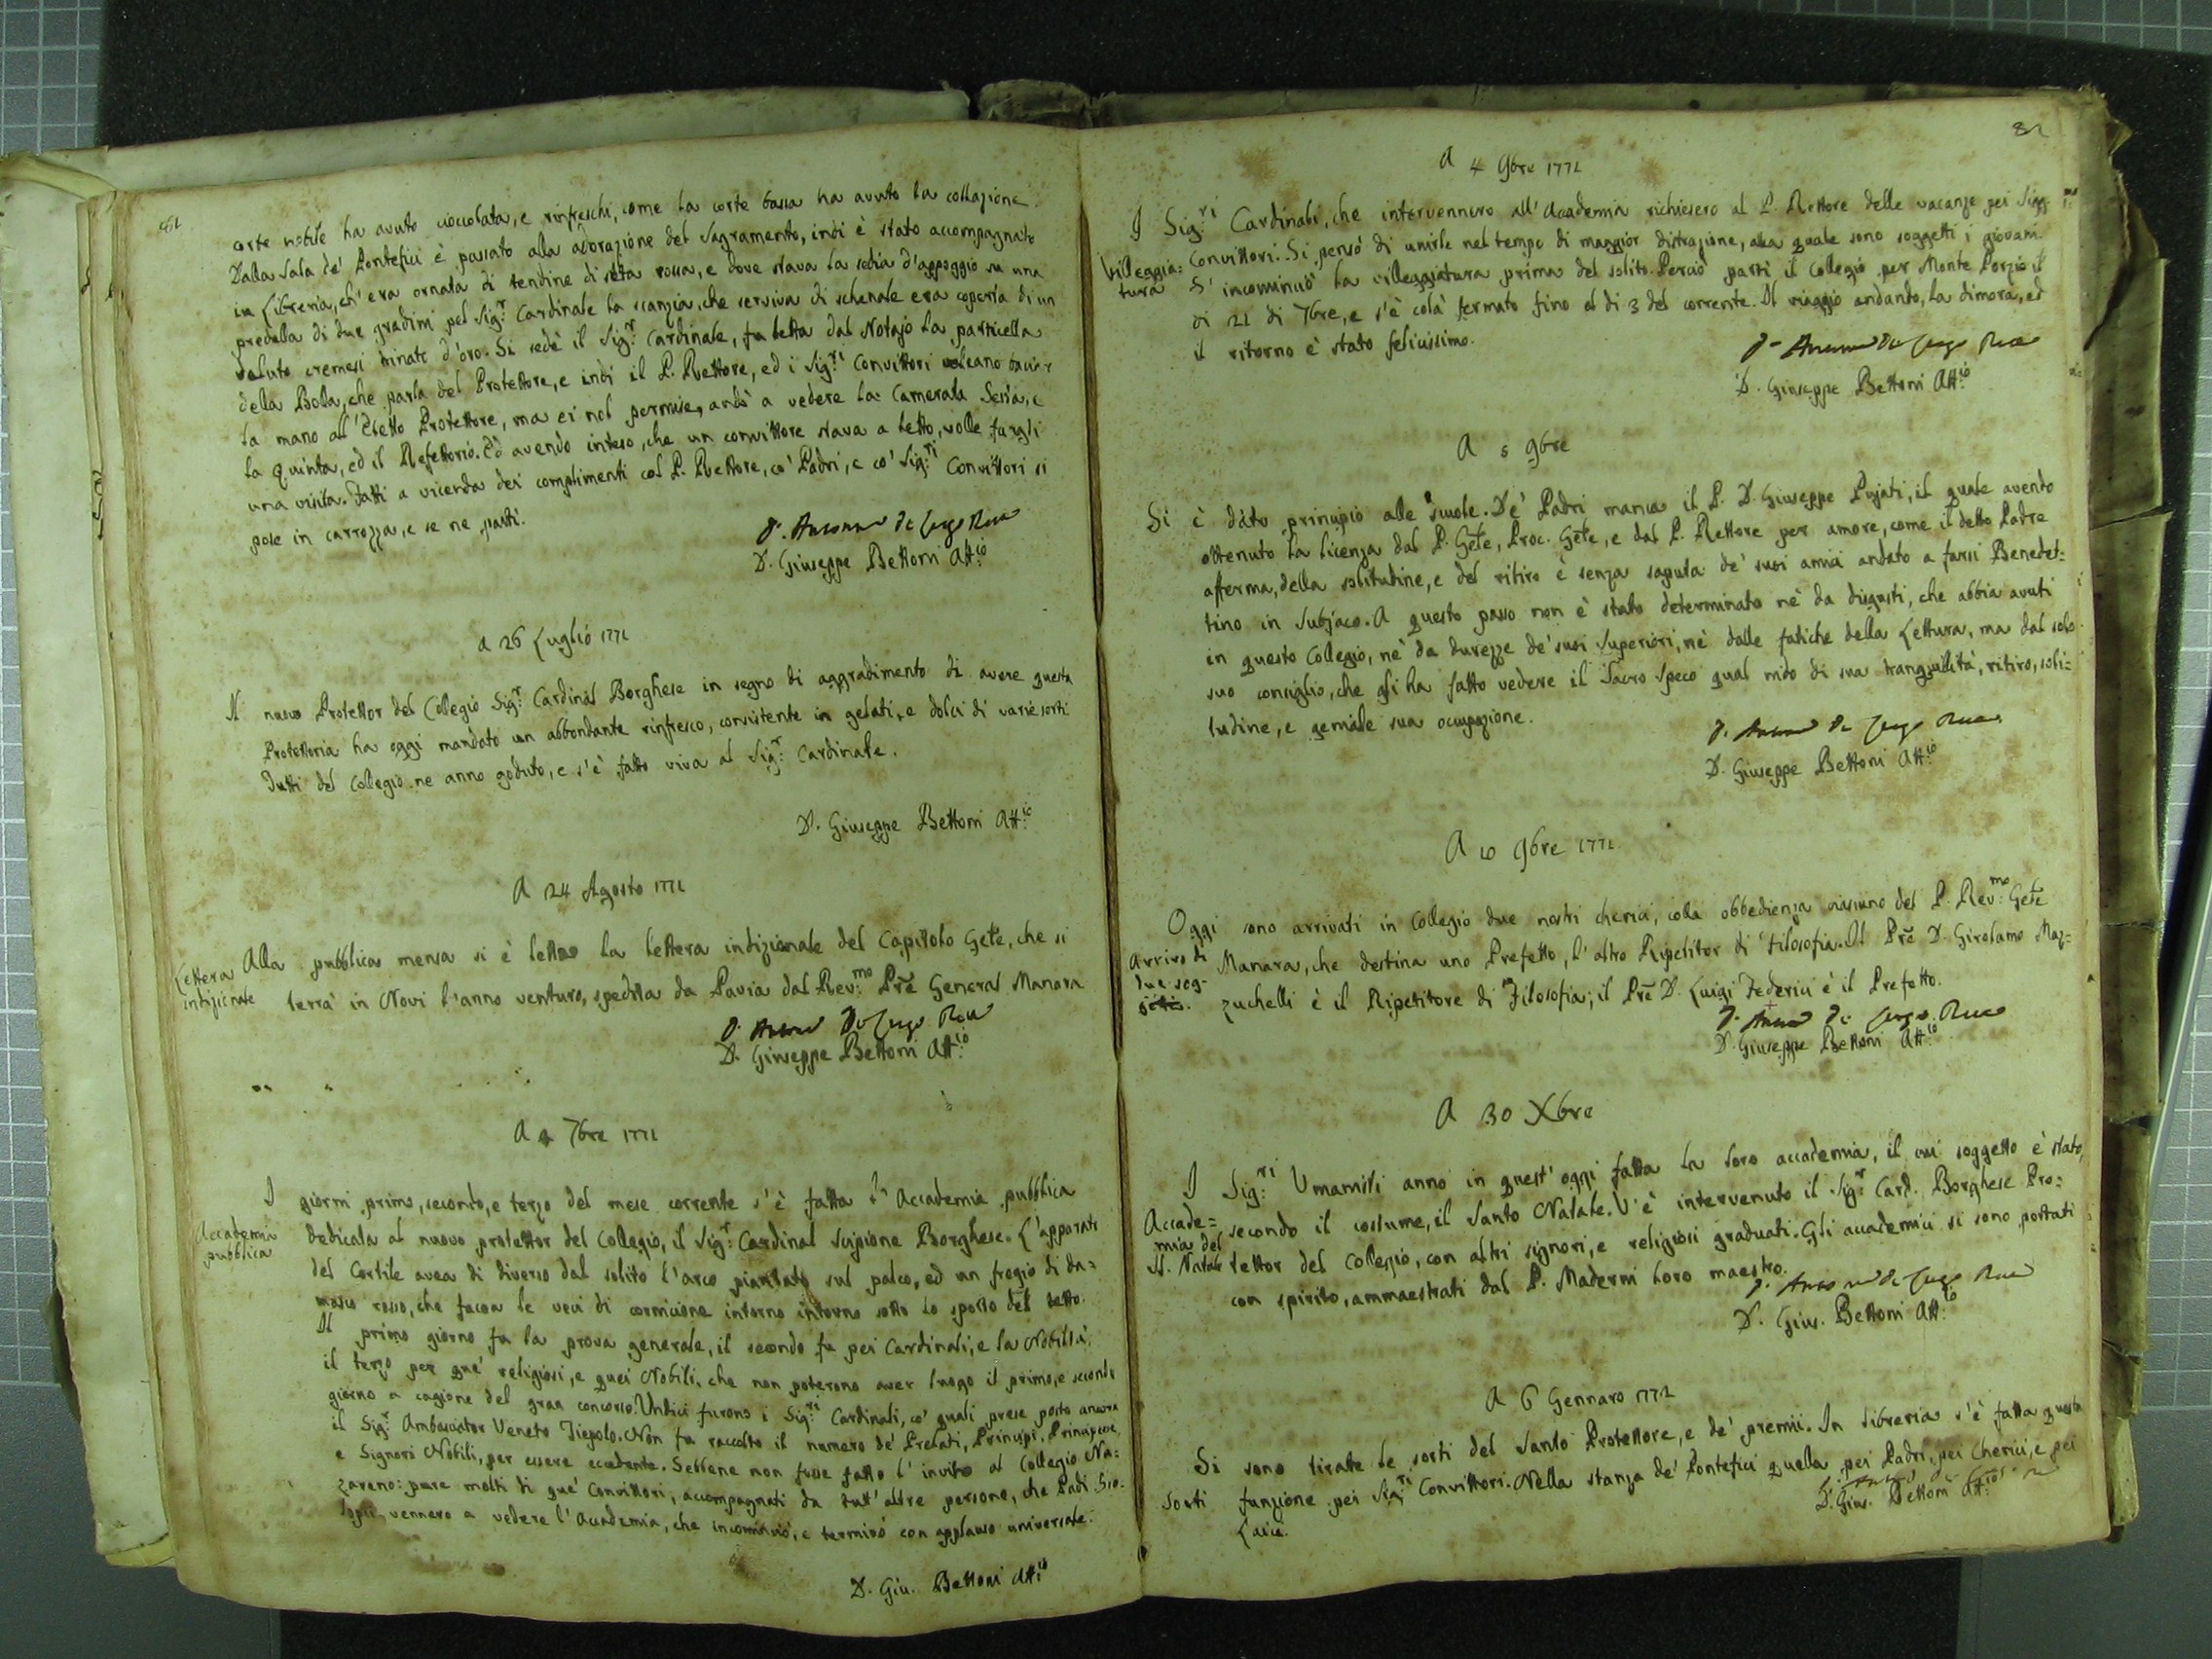 corte nobile ha avuto cioccolata, e rinfreschi, come la corte bassa ha avuto la collazione.
Dalla Sala de' Pontefici è passato alla adorazione del Sagramento, indi è stato accompagnato
in Libreria, ch'era ornata di tendine di seta rossa, e dove stava la sedia d'appoggio su una
predella di due gradini pel Sig.r Cardinale la scanzia, che serviva di schenale era coperta di un
veluto cremesi trinato d'oro. Si sedè il Sig.r Cardinale, fu letta dal Notajo la particella
della Bolla, che parla del Protettore, e indi il P. Rettore, ed i Sig.ri Convittori voleano baciar
la mano all'Eletto Protettore, ma ei nol permise, andò a vedere la Camerata Sesta, e
la quinta, ed il Refettorio. Ed avendo inteso, che un convittore stava a letto, volle fargli
una visita. Fatti a vicenda dei complimenti col P. Rettore, co' Padri, e co' Sig.ri Convittori si
pose in carrozza, e se ne partì.
D. Giuseppe Bettoni Att.io
A 26 Luglio 1771
Il nuovo Protettor del Collegio Sig.r Cardinal Borghese in segno di aggradimento di avere questa
Protettoria ha oggi mandato un abbondante rinfresco, consistente in gelati, e dolci di varie sorti.
Tutti del Collegio ne anno goduto, e s'è fatto viva al Sig.r Cardinale.
D. Giuseppe Bettoni Att.io
A 24 Agosto 1771
Lettera
indizionale
Alla pubblica mensa si è letta la lettera indizionale del Capitolo Gẽle, che si
terrà in Novi l'anno venturo, spedita da Pavia dal Rev.mo Prẽ General Manara
D. Giuseppe Bettoni Att.io
A 4 7bre 1771
Accademia
pubblica
I giorni primo, secondo, e terzo del mese corrente s'è fatta l'Accademia pubblica
dedicata al nuovo protettor del Collegio, il Sig.r Cardinal Scipione Borghese. L'apparato
del Cortile avea di diverso dal solito l'arco piantato sul palco, ed un fregio di da=
masco rosso, che facea le veci di cornicione intorno intorno sotto lo sporto del tetto.
Il primo giorno fu la prova generale, il secondo fu pei Cardinali, e la Nobiltà,
il terzo per que' religiosi, e quei Nobili, che non poterono aver luogo il primo, e secondo
giorno a cagione del gran concorso. Undici furono i Sig.ri Cardinali, co' quali prese posto ancora
il Sig.r Ambasciator Veneto Tiepolo. Non fu raccolto il numero de' Prelati, Principi, Principesse,
e Signori Nobili, per essere eccedente. Sebbene non fosse fatto l'invito al Collegio Na=
zareno: pure molti di que' Convittori, accompagnati da tutt'altre persone, che Padi Sco=
lopii, vennero a vedere l'Accademia, che incominciò, e terminò con applauso universale.
D. Giu. Bettoni Att.io
82
A 4 9bre 1771
Villeggia=
tura
I Sig.ri Cardinali, che intervennero all'Accademia richiesero al P. Rettore delle vacanze pei Sigg.ri
Convittori. Si pensò di unirle nel tempo di maggior distrazione, alla quale sono soggetti i giovani.
S'incominciò la villeggiatura prima del solito. Perciò partì il Collegio per Monte Porzio il
dì 21 di 7bre, e s'è colà fermato fino al dì 3 del corrente. Il viaggio andando, la dimora, ed
il ritorno è stato felicissimo.
D. Giuseppe Bettoni Att.io
A 5 9bre
Si è dato principio alle scuole. De' Padri manca il P. D. Giuseppe Pujati, il quale avendo
ottenuto la licenza dal P. Gẽle, Proc. Gẽle, e dal P. Rettore per amore, come il detto Padre
afferma, della solitudine, e del ritiro è senza saputa de' suoi amici andato a farsi Benedet=
tino in Subjaco. A questo passo non è stato determinato nè da disgusti, che abbia avuti
in questo Collegio, nè da durezze de' suoi Superiori, nè dalle fatiche della Lettura, ma dal solo
suo consiglio, che gli ha fatto vedere il Sacro Speco qual nido di sua tranquillità, ritiro, soli=
tudine, e geniale sua occupazione.
D. Giuseppe Bettoni Att.io
A 10 9bre 1771
Arrivo di
due sog-
getti.
Oggi sono arrivati in Collegio due nostri cherici, colla obbedienza ciascuno del P. Rev.mo Gẽle
Manara, che destina uno Prefetto, l'altro Ripetitor di Filosofia. Il Prẽ D. Girolamo Maz=
zuchelli è il Ripetitore di Filosofia; il Prẽ D. Luigi Federici è il Prefetto.
D. Giuseppe Bettoni Att.io
A 30 Xbre
Accade=
mia del
S. Natale
I Sig.ri Umanisti anno in quest'oggi fatta la loro accademia, il cui soggetto è stato,
secondo il costume, il Santo Natale. V'è intervenuto il Sig.r Card. Borghese Pro=
tettor del Collegio, con altri signori, e religiosi graduati. Gli accademici si sono portati
con spirito, ammaestrati dal P. Maderni loro maestro.
D. Gius. Bettoni Att.io
A 6 Gennaro 1772
Sorti
Si sono tirate le sorti del Santo Protettore, e de' premii. In libreria s'è fatta questa
funzione pei Sig.ri Convittori. Nella stanza de' Pontefici quella pei Padri, pei Cherici, e pei
Laici.
D. Gius. Bettoni Att.io